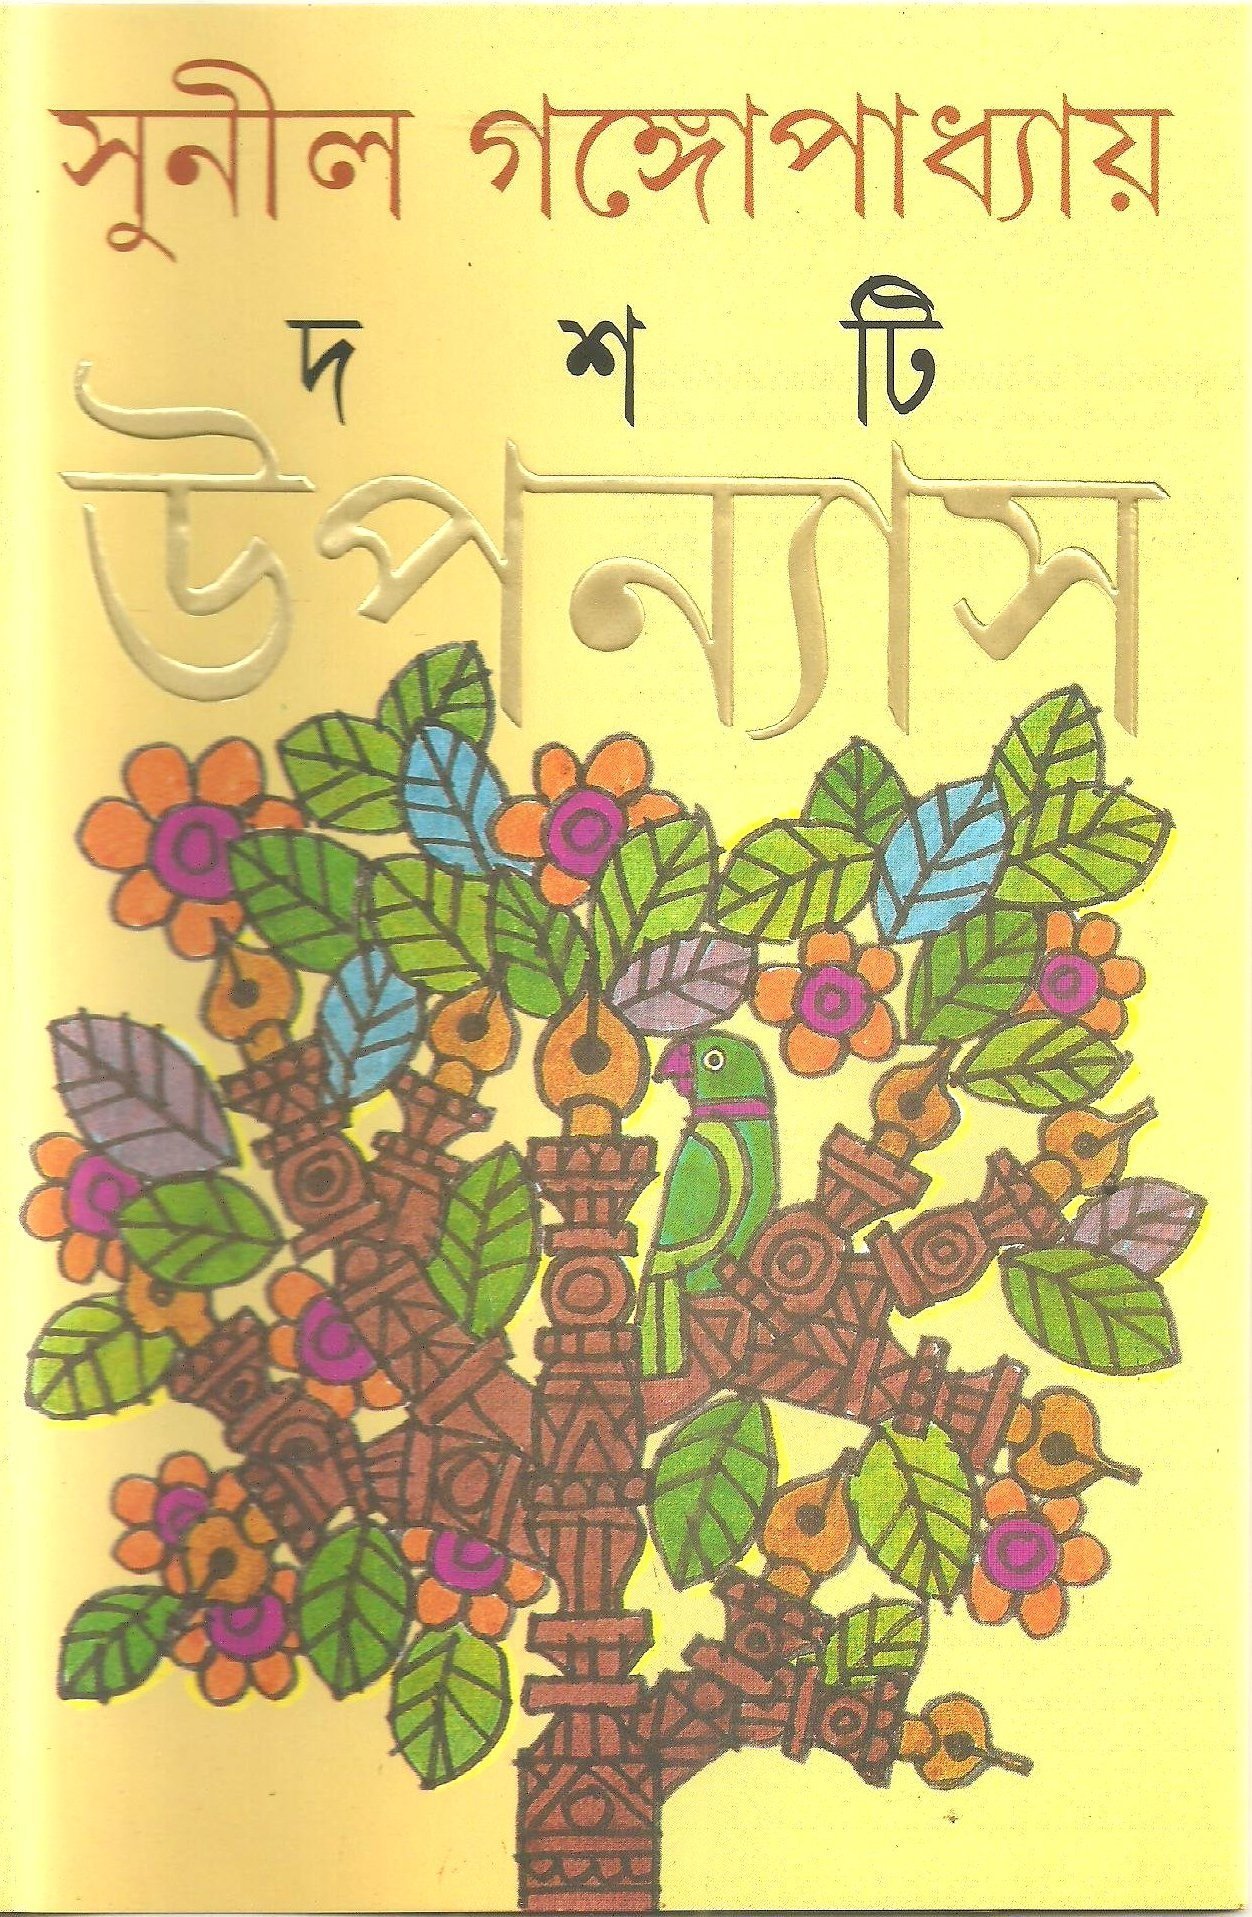 সুনীল গঙ্গোপাধ্যায়
দশটি
উপন্যাস